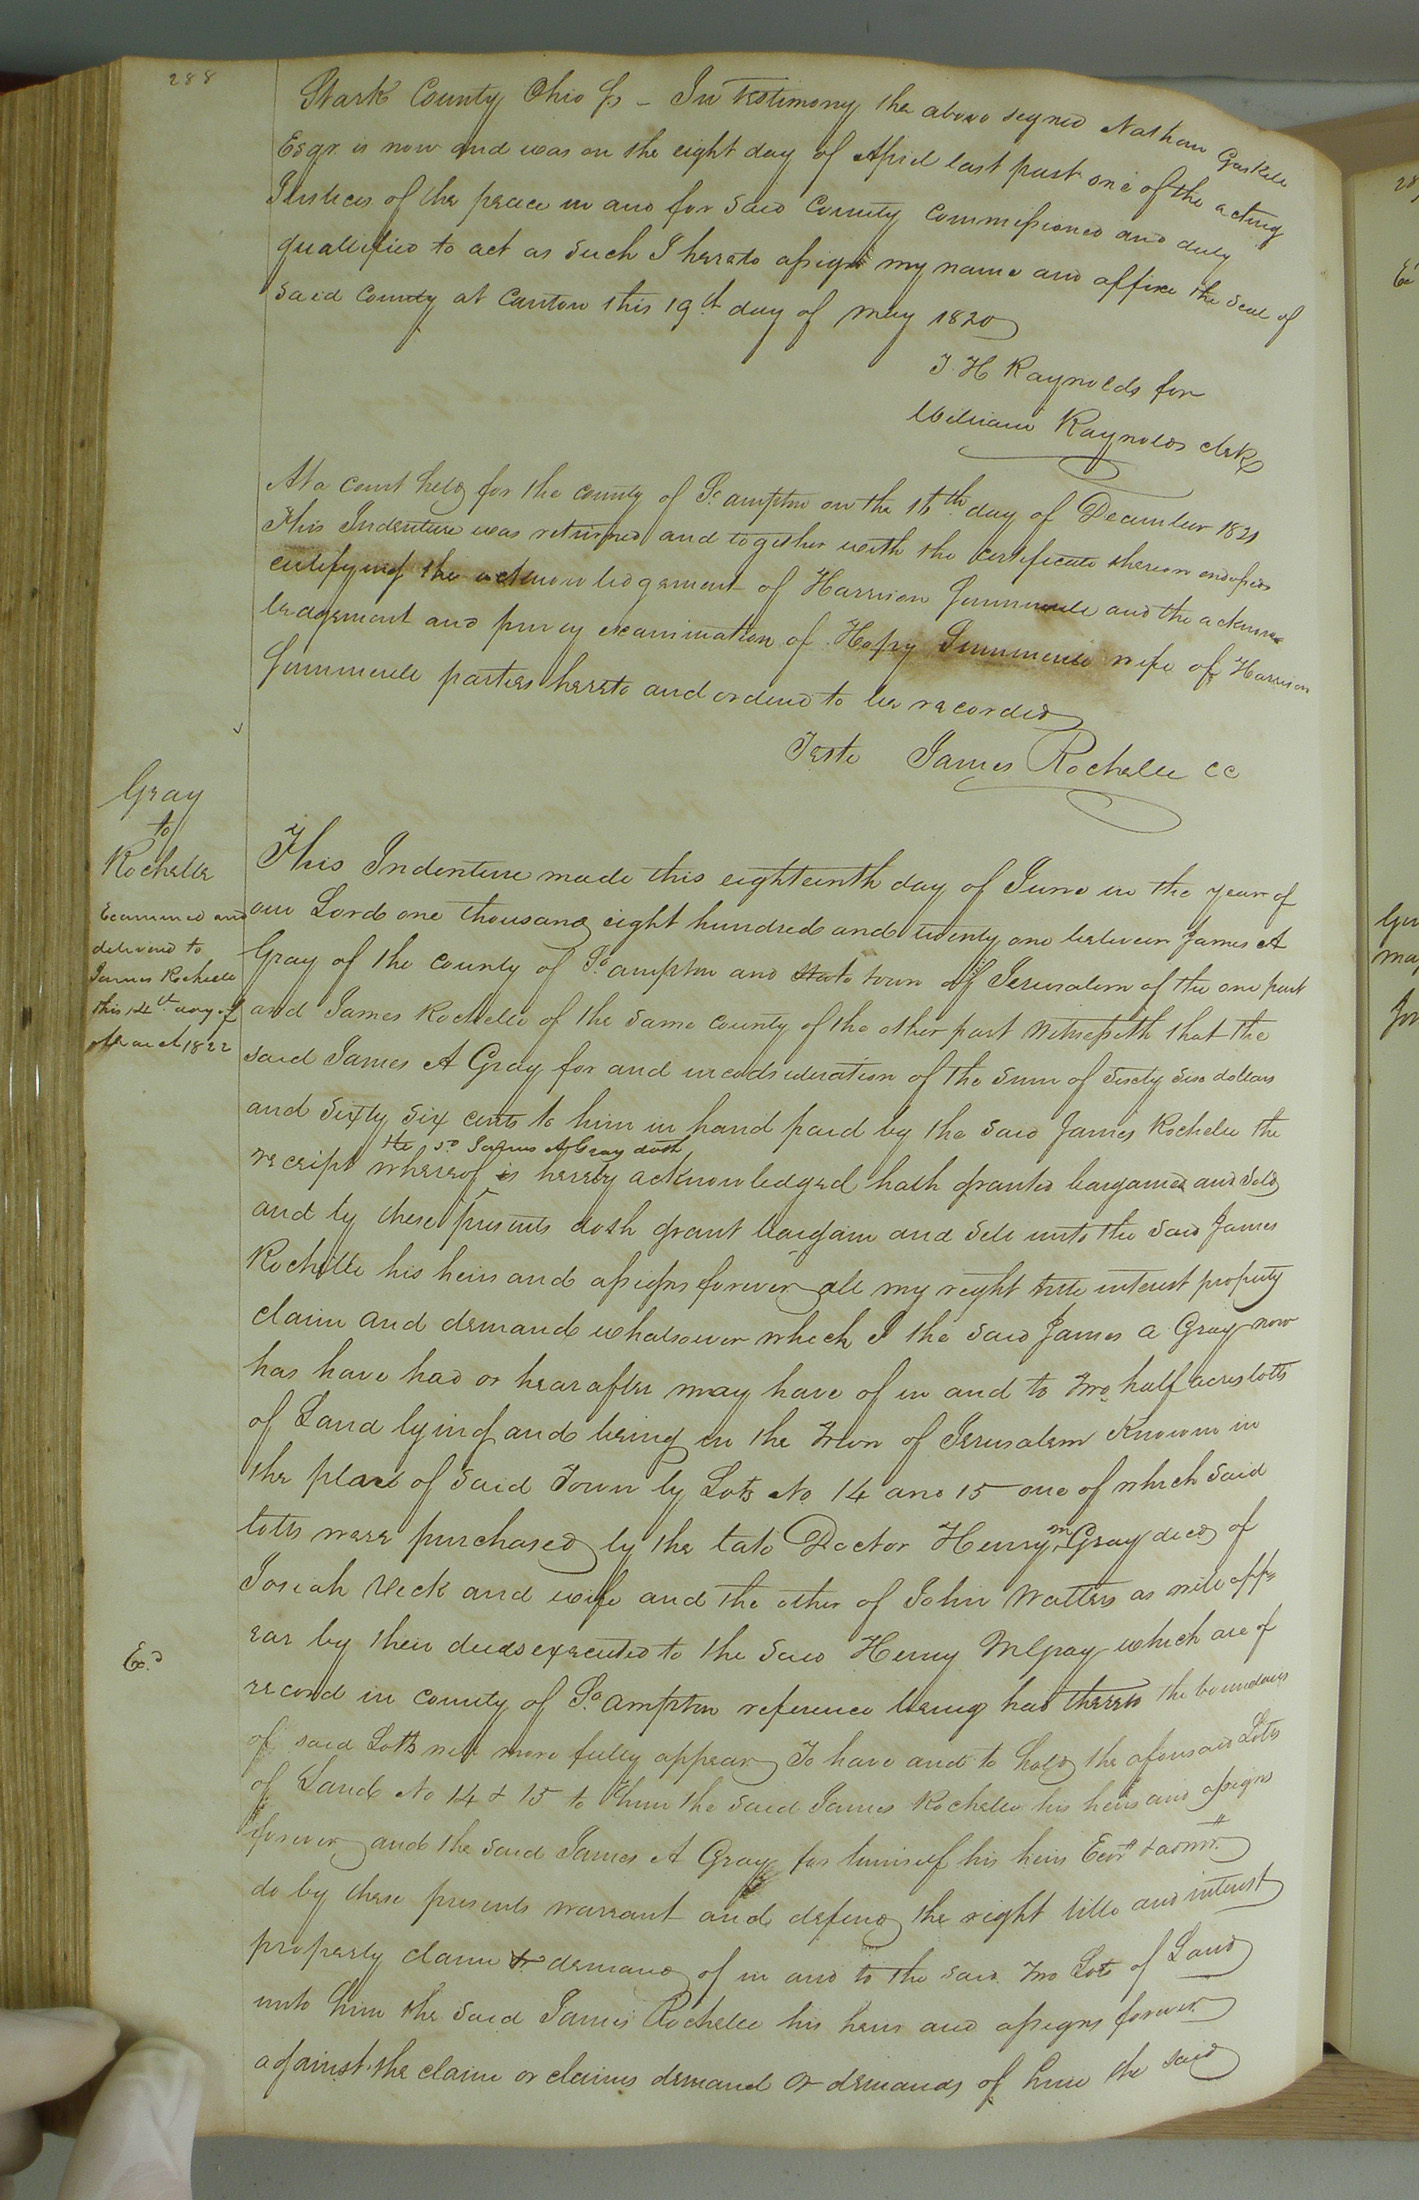 288
Stark County Ohio Ss - In testimony the above signed Nathan Gaskill
Esqr. is now and was on the eight day of April last past one of the acting
Justices of the peace in and for said County Commissioned and duly
qualified to act as such I hereto assign my name and affixe the seal of
said County at Canton this 19th day of may 1820
T. H Raynolds for
William Raynolds clerk
At a court held for the county of So. ampton on the 16th day of December 1821
This Indenture was returned and together with the certificate thereon endorsed
certifying the acknowledgement of Harrison Gummere and the acknow
ledgement and privy examination of wife of Harrison
Gummere parties hereto and ordered to be recorded
Teste James Rochelle CC
Gray
to
Rochelle
Examined and
delivered to
James Rochelle
this 14th day of
March 1822
This Indenture made this eighteenth day of June in the year of
our Lord one thousand eight hundred and twenty one between James A
Gray of the county of So. ampton and State town of Jerusalem of the one part
and James Rochelle of the same county of the other part Witnesseth that the
said James A Gray for and in consideration of the sum of sixty six dollars
and sixty six cents to him in hand paid by the said James Rochelle the
the sd. James A Gray doth
receipt whereof is hereby acknowledged hath granted bargained and sold
and by these presents doth grant bargain and sell unto the said James
Rochelle his heirs and assigns forever all my right title interest property
claim and demand whatsoever which I the said James a Gray now
has have had or hearafter may have of in and to two half acres lotts
of Land lying and being in the Town of Jerusalem Known in
the plan of said Town by Lots No. 14 and 15 one of which said
lotts were purchased by the late Doctor Henry M Gray decd of
Josiah Vick and wife and the other of John Watters as will app-
ear by their deeds executed to the said Henry M Gray which are of
Ex.d
record in county of So. ampton reference being had thereto the boundaries
of said Lotts will more fully appear To have and to hold the aforesaid Lotts
of Land No 14 & 15 to him the said James Rochelle his heirs and assigns
forever and the said James A Gray for himself his heirs Exrs & admrs.
do by these presents warrant and defend the right title and interest
property claim & demand of in and to the said two Lots of Land
unto him the said James Rochelle his heirs and assigns forever
against the claim or claims demand or demands of him the said